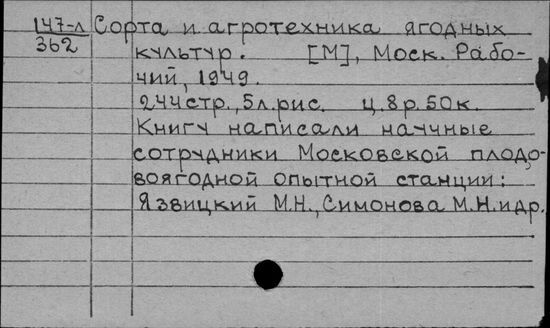 147-л Сорта и агротехника ягодных
362 культур. [М], Моск. Рабо-
чий, 1949.
244стр., 5л.рис. ц.8р.50к.
Книгу написали научные
сотрудники Московской плодо-
воягодной опытной станции:
Язвицкий М.Н., Симонова М.Н. и др.